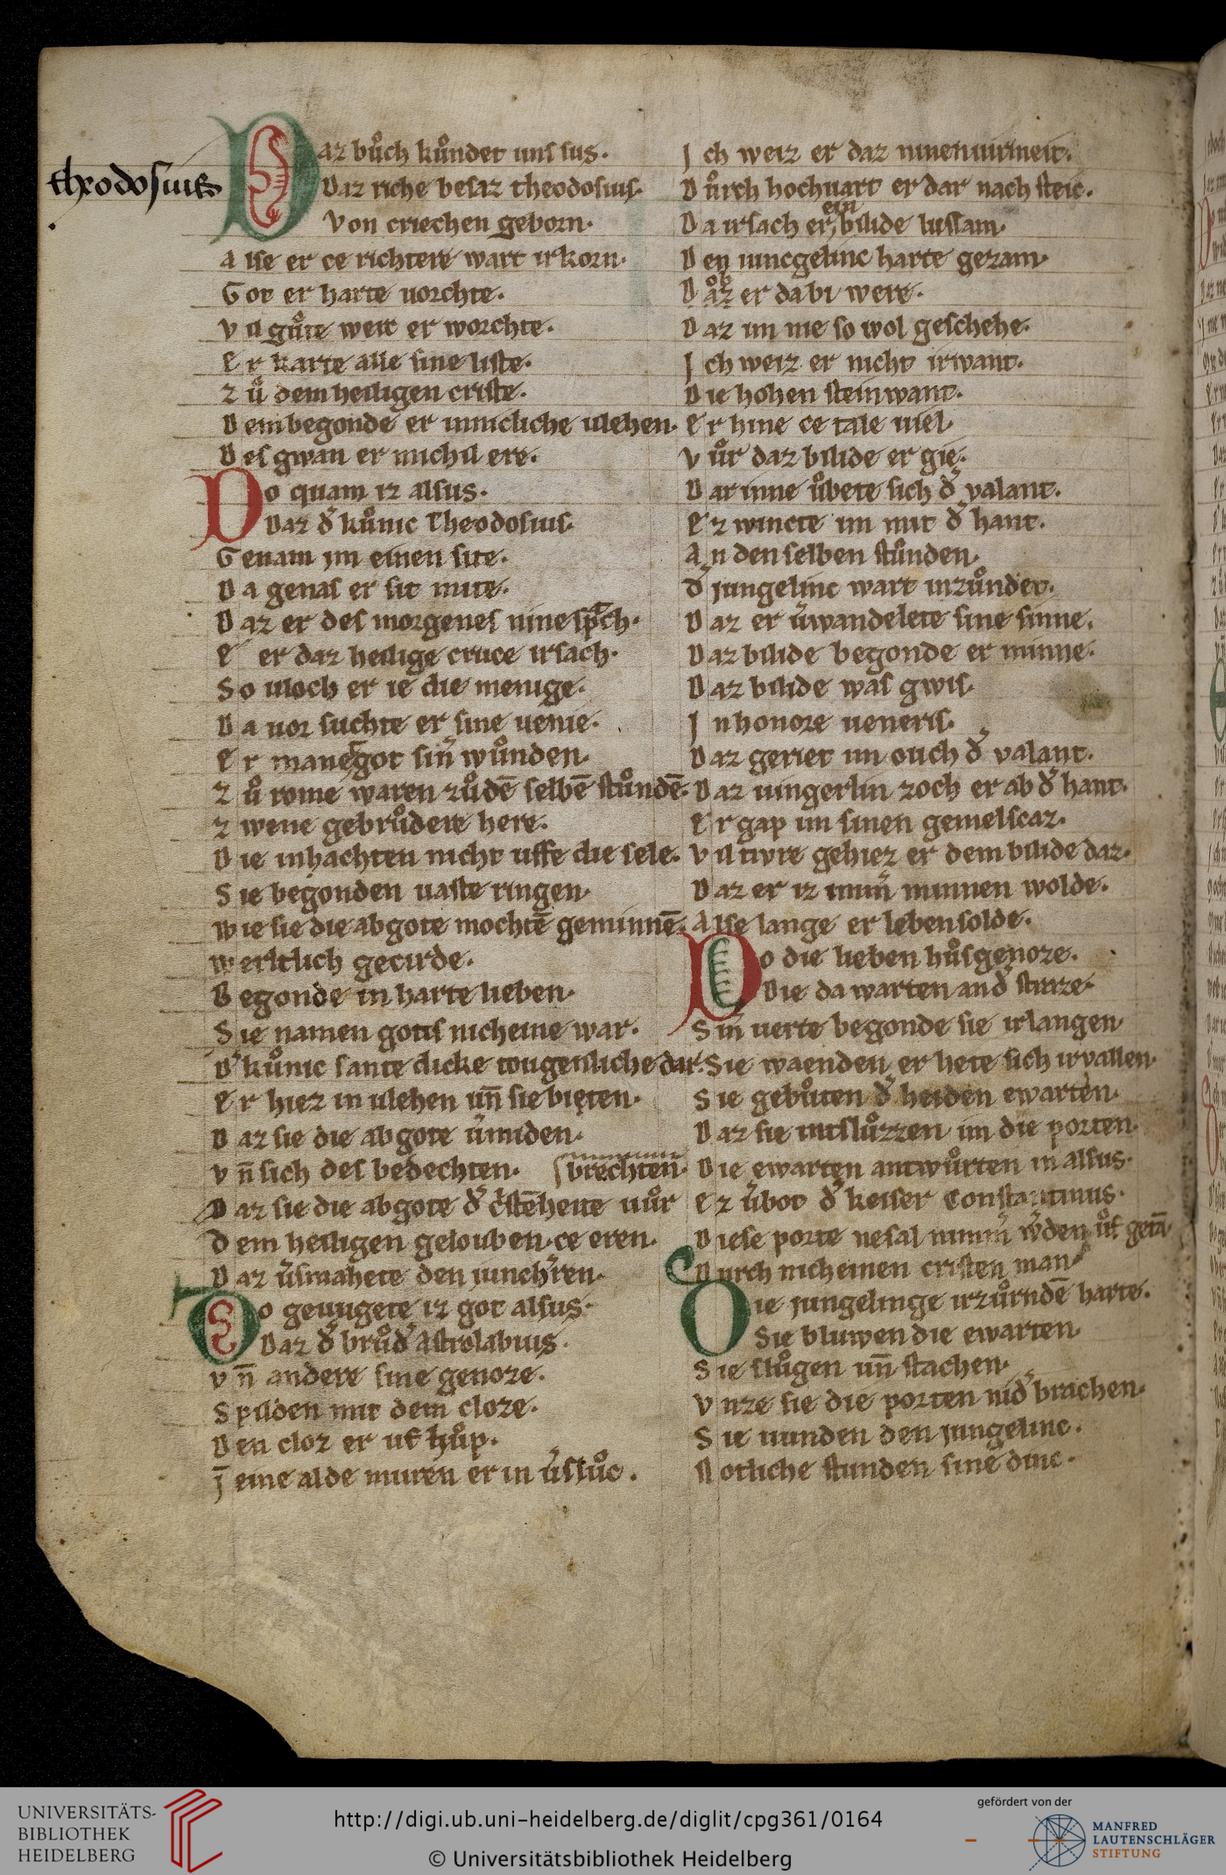 theodosius
Daz bůch kůndet uns sus·
Daz riche besaz theodosius·
Von criechen geborn·
alse er ce richtere wart irkorn·
Got er harte uorchte·
vil gůte werc er worchte·
er karte alle sine liste·
zů dem heiligen criste·
Dem begonde er innicliche ulehen·
Des gwan er michil ere·
Do quam iz alsus·
Daz d͛ kůnic Theodosius·
Genam im einen site·
Da genas er sit mite·
Daz er des morgenes nine sp̄ch·
e er daz heilige cruce irsach·
So uloch er ie die menige·
Da uor suchte er sine uenie·
er manete got sin͛ wůnden·
zů rome waren zů dē selbē stůndē·
zwene gebrůdere here·
Die inhachten nicht uffe die sele·
Sie begonden uaste ringen·
wie sie die abgote mochtē geminnē·
werltlich gecirde·
Begonde in harte lieben·
Sie namen gotis nicheine war·
D͛ kůnic sante dicke tougenliche dar·
er hiez in ulehen un̄ sie bieten·
Daz sie die abgote u͛miden·
vn̄ sich des bedechten·
Daz sie die abgote d͛ c͛stēheite uůr brechten·
dem heiligen gelouben·ce eren·
Daz u͛smahete den iunch͛ren·
Do geuugete iz got alsus·
Daz d͛ brůd͛ Astrolabius·
vn̄ andere sine genoze·
Spilden mit dem cloze·
Den cloz er uf hůp·
J̄ eine alde muren er in u͛slůc·
Jch weiz er daz ninenuirmeit·
Důrch hochuart er dar nach steic·
Da irsach er ein bilide lussam·
Den iuncgelinc harte gezam·
Daz er da bi were·
Daz im nie so wol geschehe·
Jch weiz er nicht irwant·
Die hohen steinwant·
er hine ce tale uiel·
vůr daz bilide er gie·
Dar inne ůbete sich d͛ valant·
ez wincte im mit d͛ hant·
an den selben stůnden·
d͛ jungelinc wart inzůndet·
Daz er u͛wandelete sine sinne·
Daz bilide begonde er minne·
Daz bilide was gwis·
Jn honore ueneris·
Daz geriet im ouch d͛ valant·
Daz uingerlin zoch er ab d͛ hant·
er gap im sinen gemelscaz·
vil tivre gehiez er dem bilide daz·
Daz er iz imm͛ minnen wolde·
alse lange er leben solde·
Do die lieben hůsgenoze·
Die da warten and͛ straze·
Sin͛ uerte begonde sie irlangen
Sie waenden er hete sich irvallen·
Sie gebůten d͛ heiden ewarten·
Daz sie intslůzzen im die porten·
Die ewarten antwůrten in alsus·
ez u͛bot d͛ keiser Constantinus·
Diese porte nesal nimm͛ w͛den ůf getā·
Durch nicheinen cristen man
Die jungelinge irzůrndē harte·
Sie bluwen die ewarten·
Sie slůgen un̄ stachen·
Vnze sie die porten nid͛ brachen·
Sie uunden den jungelinc·
Notliche stunden sine dinc·
UNIVERSITÄTS-
BIBLIOTHEK
HEIDELBERG
http://digi.ub.uni-heidelberg.de/diglit/cpg361/0164
© Universitätsbibliothek Heidelberg
gefördert von der
MANFRED
LAUTENSCHLÄGER
STIFTUNG